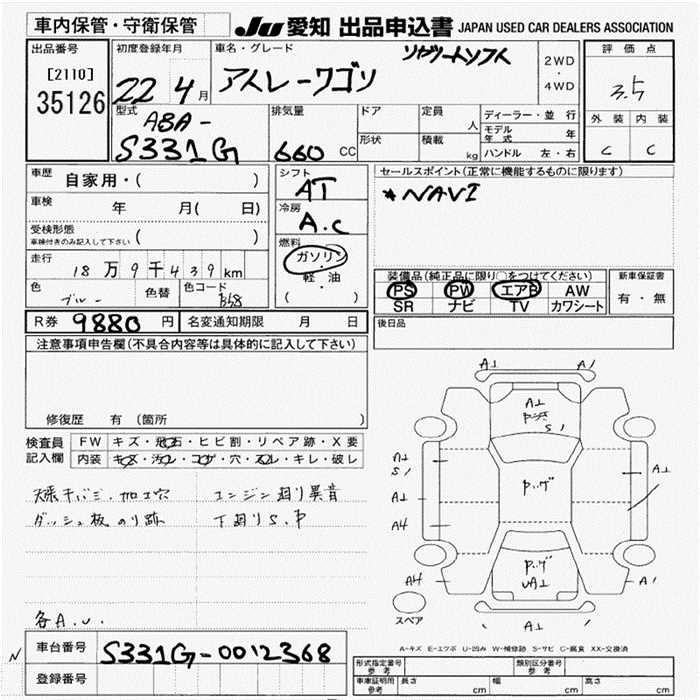 車内保管・守衛保管
JU 愛知 出品申込書 JAPAN USED CAR DEALERS ASSOCIATION
出品番号
[2110]
35126
初度登録年月
22 4月
車名・グレード
アトレーワゴン
2WD
・
4WD
評価点
3.5
外装 内装
C C
型式
ABA-
S331G
排気量
660 CC
ドア
形状
定員
人
積載
kg
ディーラー・並行
モデル年式 年
ハンドル 左・右
車歴 自家用・( )
車検 年 月( 日)
受検形態
車検付きのみ記入して下さい ( )
走行
18万9千439km
色 ブルー 色替 色コード
R券 9880円 名変通知期限 月 日
シフト
AT
冷房
A.C
燃料
ガソリン
・
軽・油
( )
セールスポイント(正常に機能するものに限ります)
*NAVI
装備品(純正品に限り○をつけてください)
PS PW エアB AW
SR ナビ TV カワシート
新車保証書
有・無
後日品
注意事項申告欄(不具合内容等は具体的に記入して下さい)
修復歴 有 (箇所 )
検査員記入欄
FW キズ・飛石・ヒビ割・リペア跡・X要
内装 キズ・汚レ・コゲ・穴・スレ・キレ・破レ
天張干バミ・加工穴
ダッシュ板のり跡
エンジン廻り異音
下廻りS.P
各A.U.
A1 A1
A1
S1
A1
S1
A1
A4
A4
P.ゲ
P.ゲ
UA1
A1
A1
スペア
A-キズ E-エクボ U-凹み W-補修跡 S-サビ C-腐食 XX-交換済
車台番号 S331G-0012368
登録番号
N
形式指定番号 参考
類別区分番号 参考
車庫証明用 参考
長さ cm 幅 cm 高さ cm